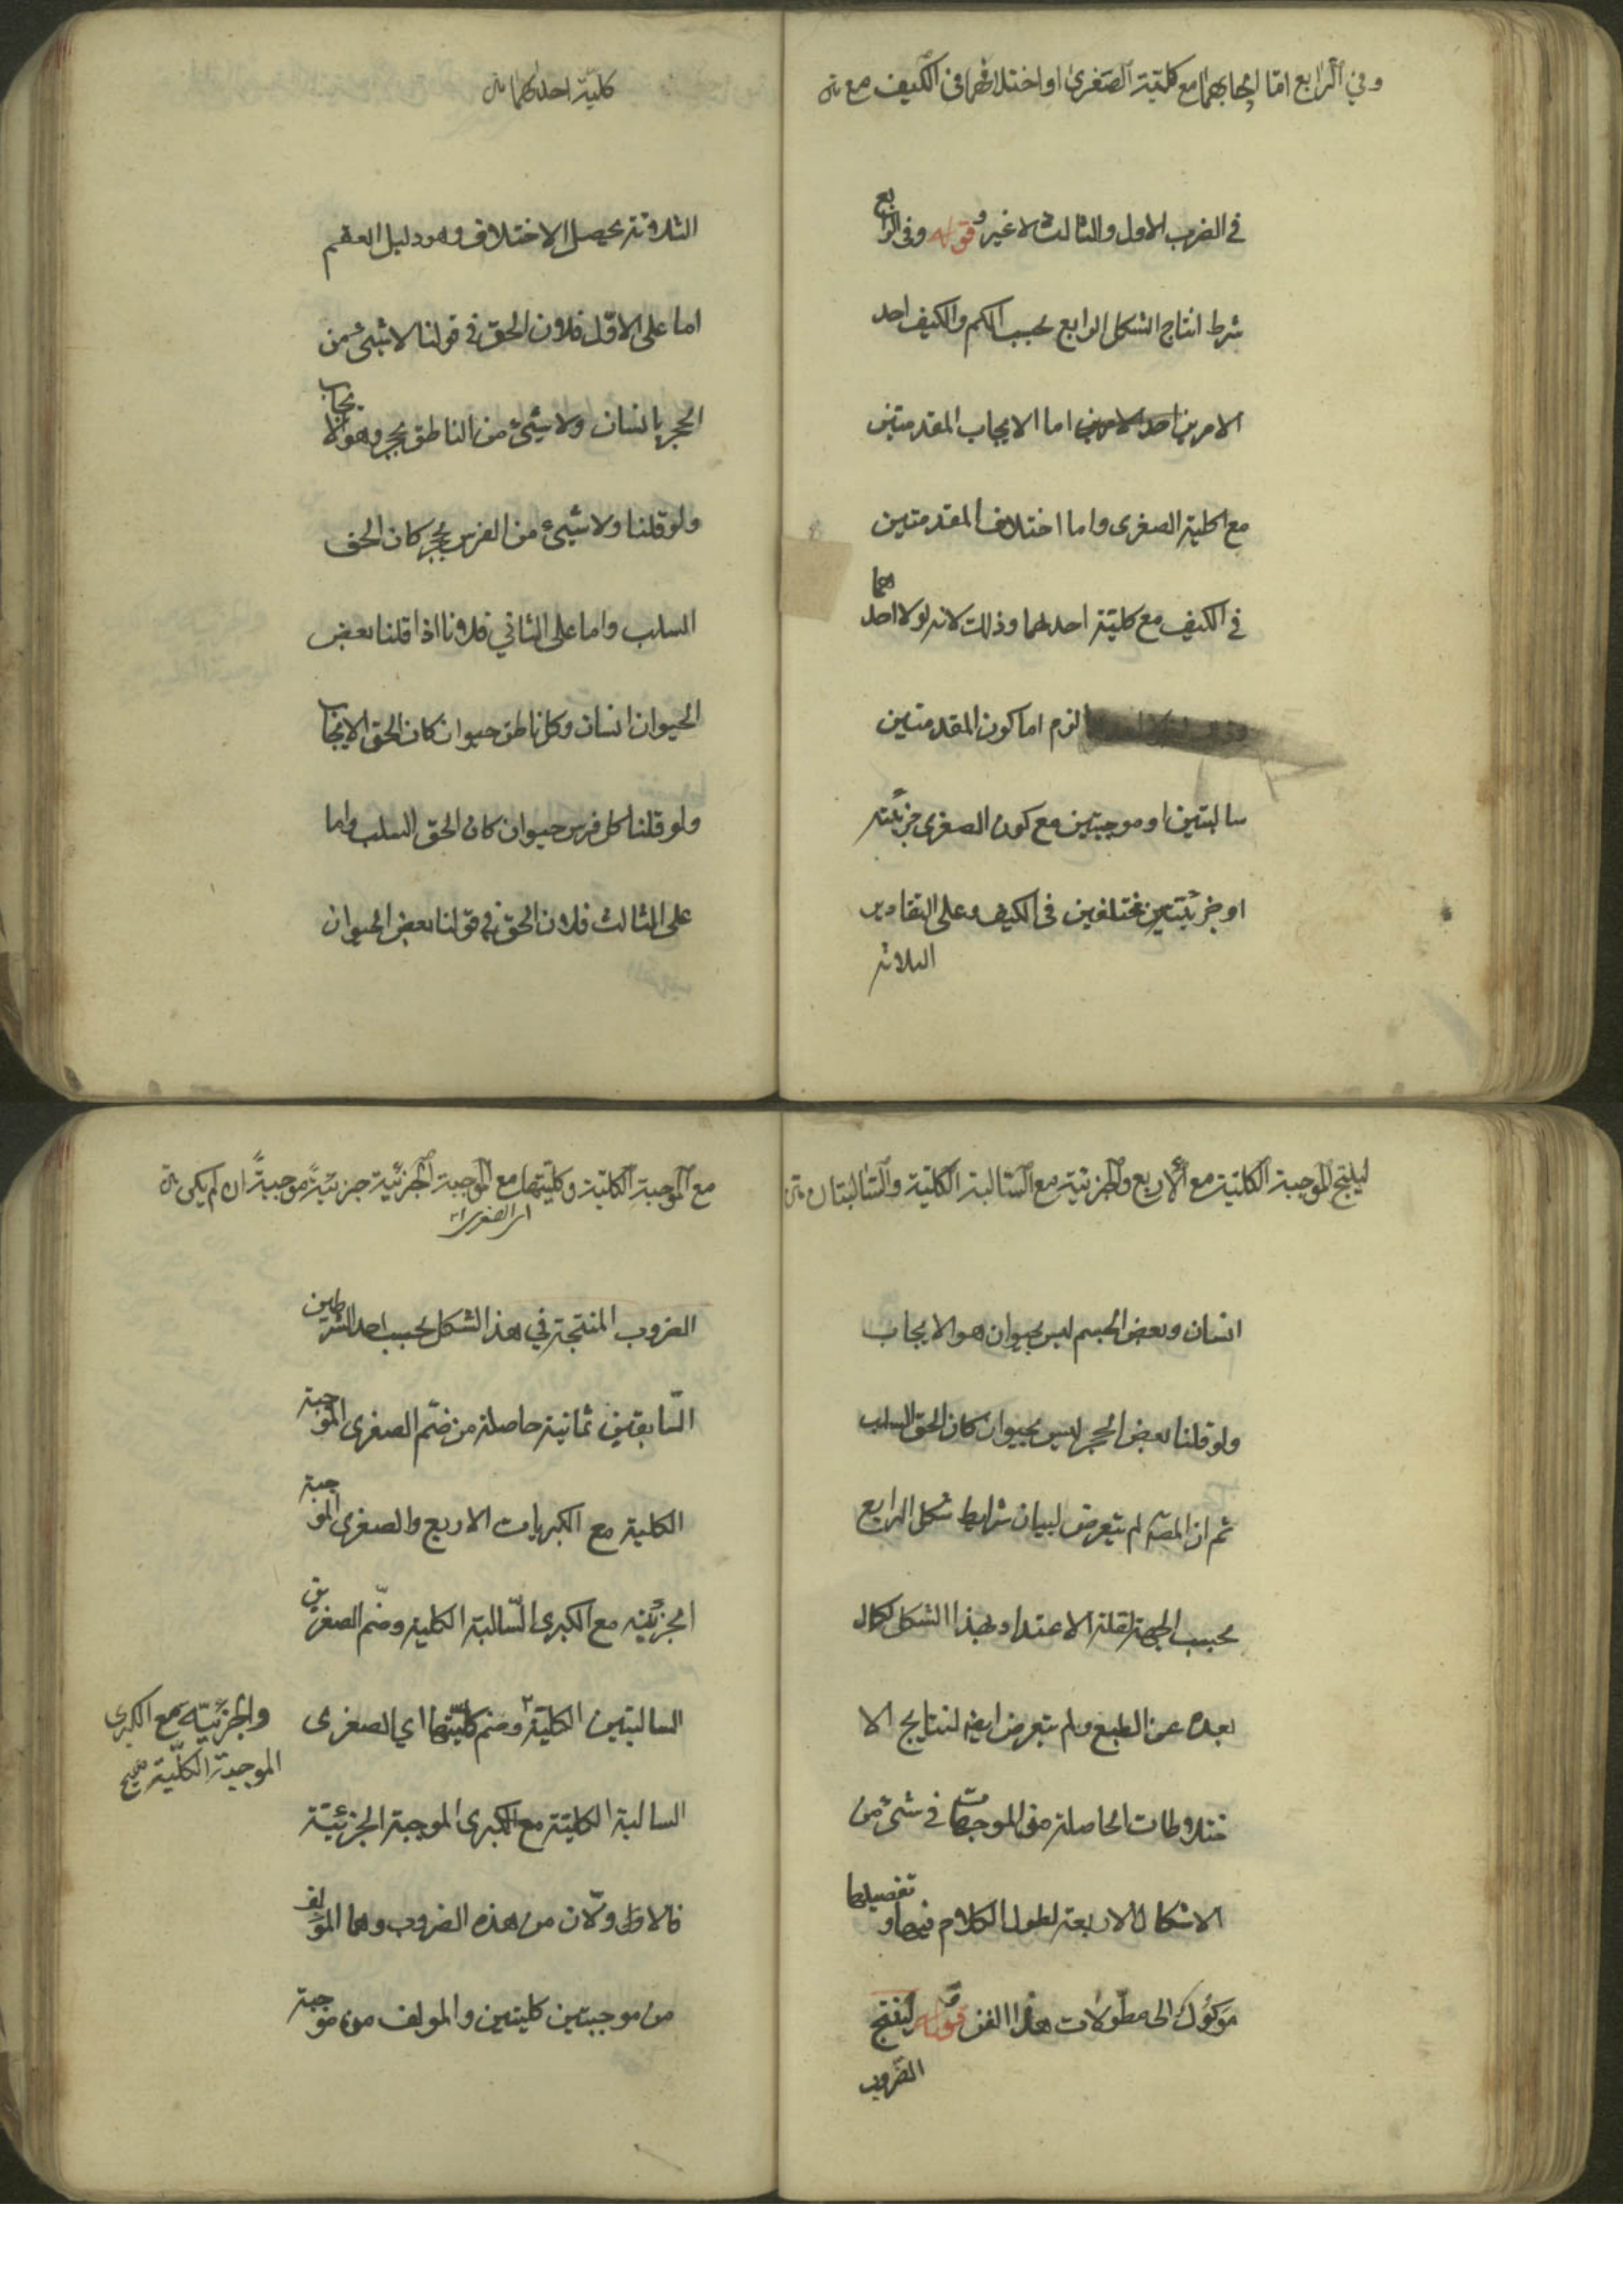 وفي الرابع امّا ايجابهما مع كليّة الصغرى او اختلافهما فى الكيف مع
فى الضرب الاول والثالث لا غير و قوله وفى الرابع
شرط انتاج الشكل الرابع بحسب الكم والكيف احد
الامرين احد الامرين اما الايجاب المقدمتين
مع كلية الصغرى واما اختلاف المقدمتين
فى الكيف مع كلية احدهما وذلك لانه لولا احدهما
لزم اما كون المقدمتين
سالبتين او موجبتين مع كون الصغرى جزئية
او جزئيتين مختلفين فى الكيف وعلى التقادير
الثلاثة
كليّة احداهما
الثلاثة يحصل الاختلاف وهو دليل العقم
اما على الاوّل فلان الحق فى قولنا لا شيئ من
الحجر بانسان ولا شيئ من الناطق بحجر وهو الايجاب
ولو قلنا ولا شيئ من الفرس بحجر كان الحق
السلب واما على الثاني فلانا اذا قلنا بعض
الحيوان انسان وكل ناطق حيوان كان الحق الايجاب
ولو قلنا كل فرس حيوان كان الحق السلب واما
على الثالث فلان الحق فى قولنا بعض الحيوان
لينتج الموجبة الكليّة مع الأربع والجزئية مع السّالبة الكليّة والسّالبتان
انسان وبعض الجسم ليس بحيوان هو الايجاب
ولو قلنا بعض الحجر ليس بحيوان كان الحق السلب
ثم ان المصّ لم يتعرض لبيان شرايط شكل الرابع
بحسب الجهة لقلة الاعتداد بهذا الشكل لكمال
بعده عن الطبع ولم يتعرض ايضا لنتايج الا
ختلاطات الحاصلة من الموجهات فى شئ من
الاشكال الاربعة لطول الكلام فيها و تفصيلها
موكول الى مطوّلات هذا الفن قوله لينتج
الضّروب
مع الموجبة الكليّة وكليّتها مع الموجبة الجزئيّة جزئيّةً موجبةً ان لم يكن
اى الصغرى
الضروب المنتجة في هذا الشكل بحسب احد الشرطين
السّابقين ثمانية حاصلة من ضمّ الصغرى الموجبة
الكلية مع الكبريات الاربع والصغرى الموجبة
الجزئية مع الكبرى السّالبة الكلية وضمّ الصغريين
السالبتين الكلية وضم كليّتها اي الصغرى
والجزئيّة مع الكبرى
الموجبة الكليّة صح
السالبة الكلية مع الكبرى الموجبة الجزئيّة
فالاولّان من هذه الضروب وهما المؤلف
من موجبتين كليتين والمولف من موجبة